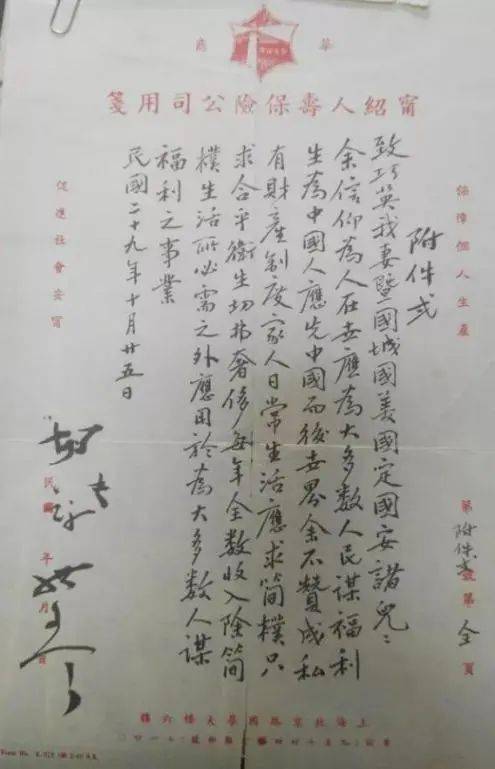 華商
甯紹人壽保險公司用箋
保障個人生產
第附件弍號第全頁
附件弍
致巧英我妻暨國城國美國定國安諸兒:
余信仰為人在世應為大多數人民謀福利
生為中國人應先中國而後世界余不贊成私
有財產制度家人日常生活應求簡樸只
求合乎衛生切弗奢侈每年全數收入除簡
樸生活所必需之外應用於為大多數人謀
福利之事業
民國二十九年十月廿五日
促進社會安甯
民國 年 月 日
上海北京路國華大樓六樓